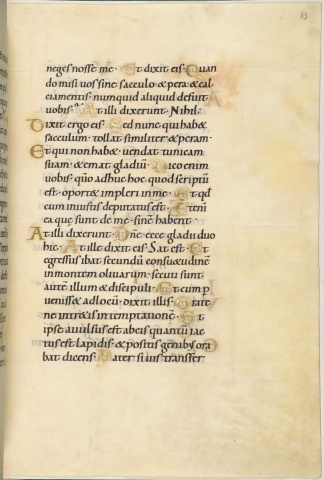 neges nosse me· Et dixit eis· Quan
do misi uos sine sacculo· & pera· & cal
ciamentis· numquid aliquid defuit
uobis· At illi dixerunt· Nihil·
Dixit ergo eis· Sed nunc qui hab&
sacculum· tollat similiter & peram·
Et qui non hab& uendat tunicam
suam· & emat gladiū· Dico enim
uobis· quō adhuc hoc quod scriptū
est· oport& impleri in me· Et qđ
cum iniustis deputatus est· Etenī
ea que sunt de me· finē habent·
At illi dixerunt· Dn̄e· ecce gladii duo
hic· At ille dixit eis· Sat est· Et
egressus ibat secundū consu&udinē
in montem oliuarum· secuti sunt
autē illum & discipuli· Et cum p
uenisset ad locū· dixit illis· Orate
ne intr&is in temptationē· Et
ipse auulsus est ab eis quantū iac
tus est lapidis· & positis genibꝰ ora
bat dicens· Pater si uis transfer